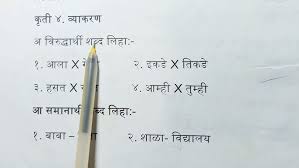 कृती ४. व्याकरण
अ विरुद्धार्थी शब्द लिहा:-
१. आला X २. इकडे X तिकडे
३. हसत X ४. आम्ही X तुम्ही
आ समानार्थी शब्द लिहा:-
१. बाबा - २. शाळा- विद्यालय